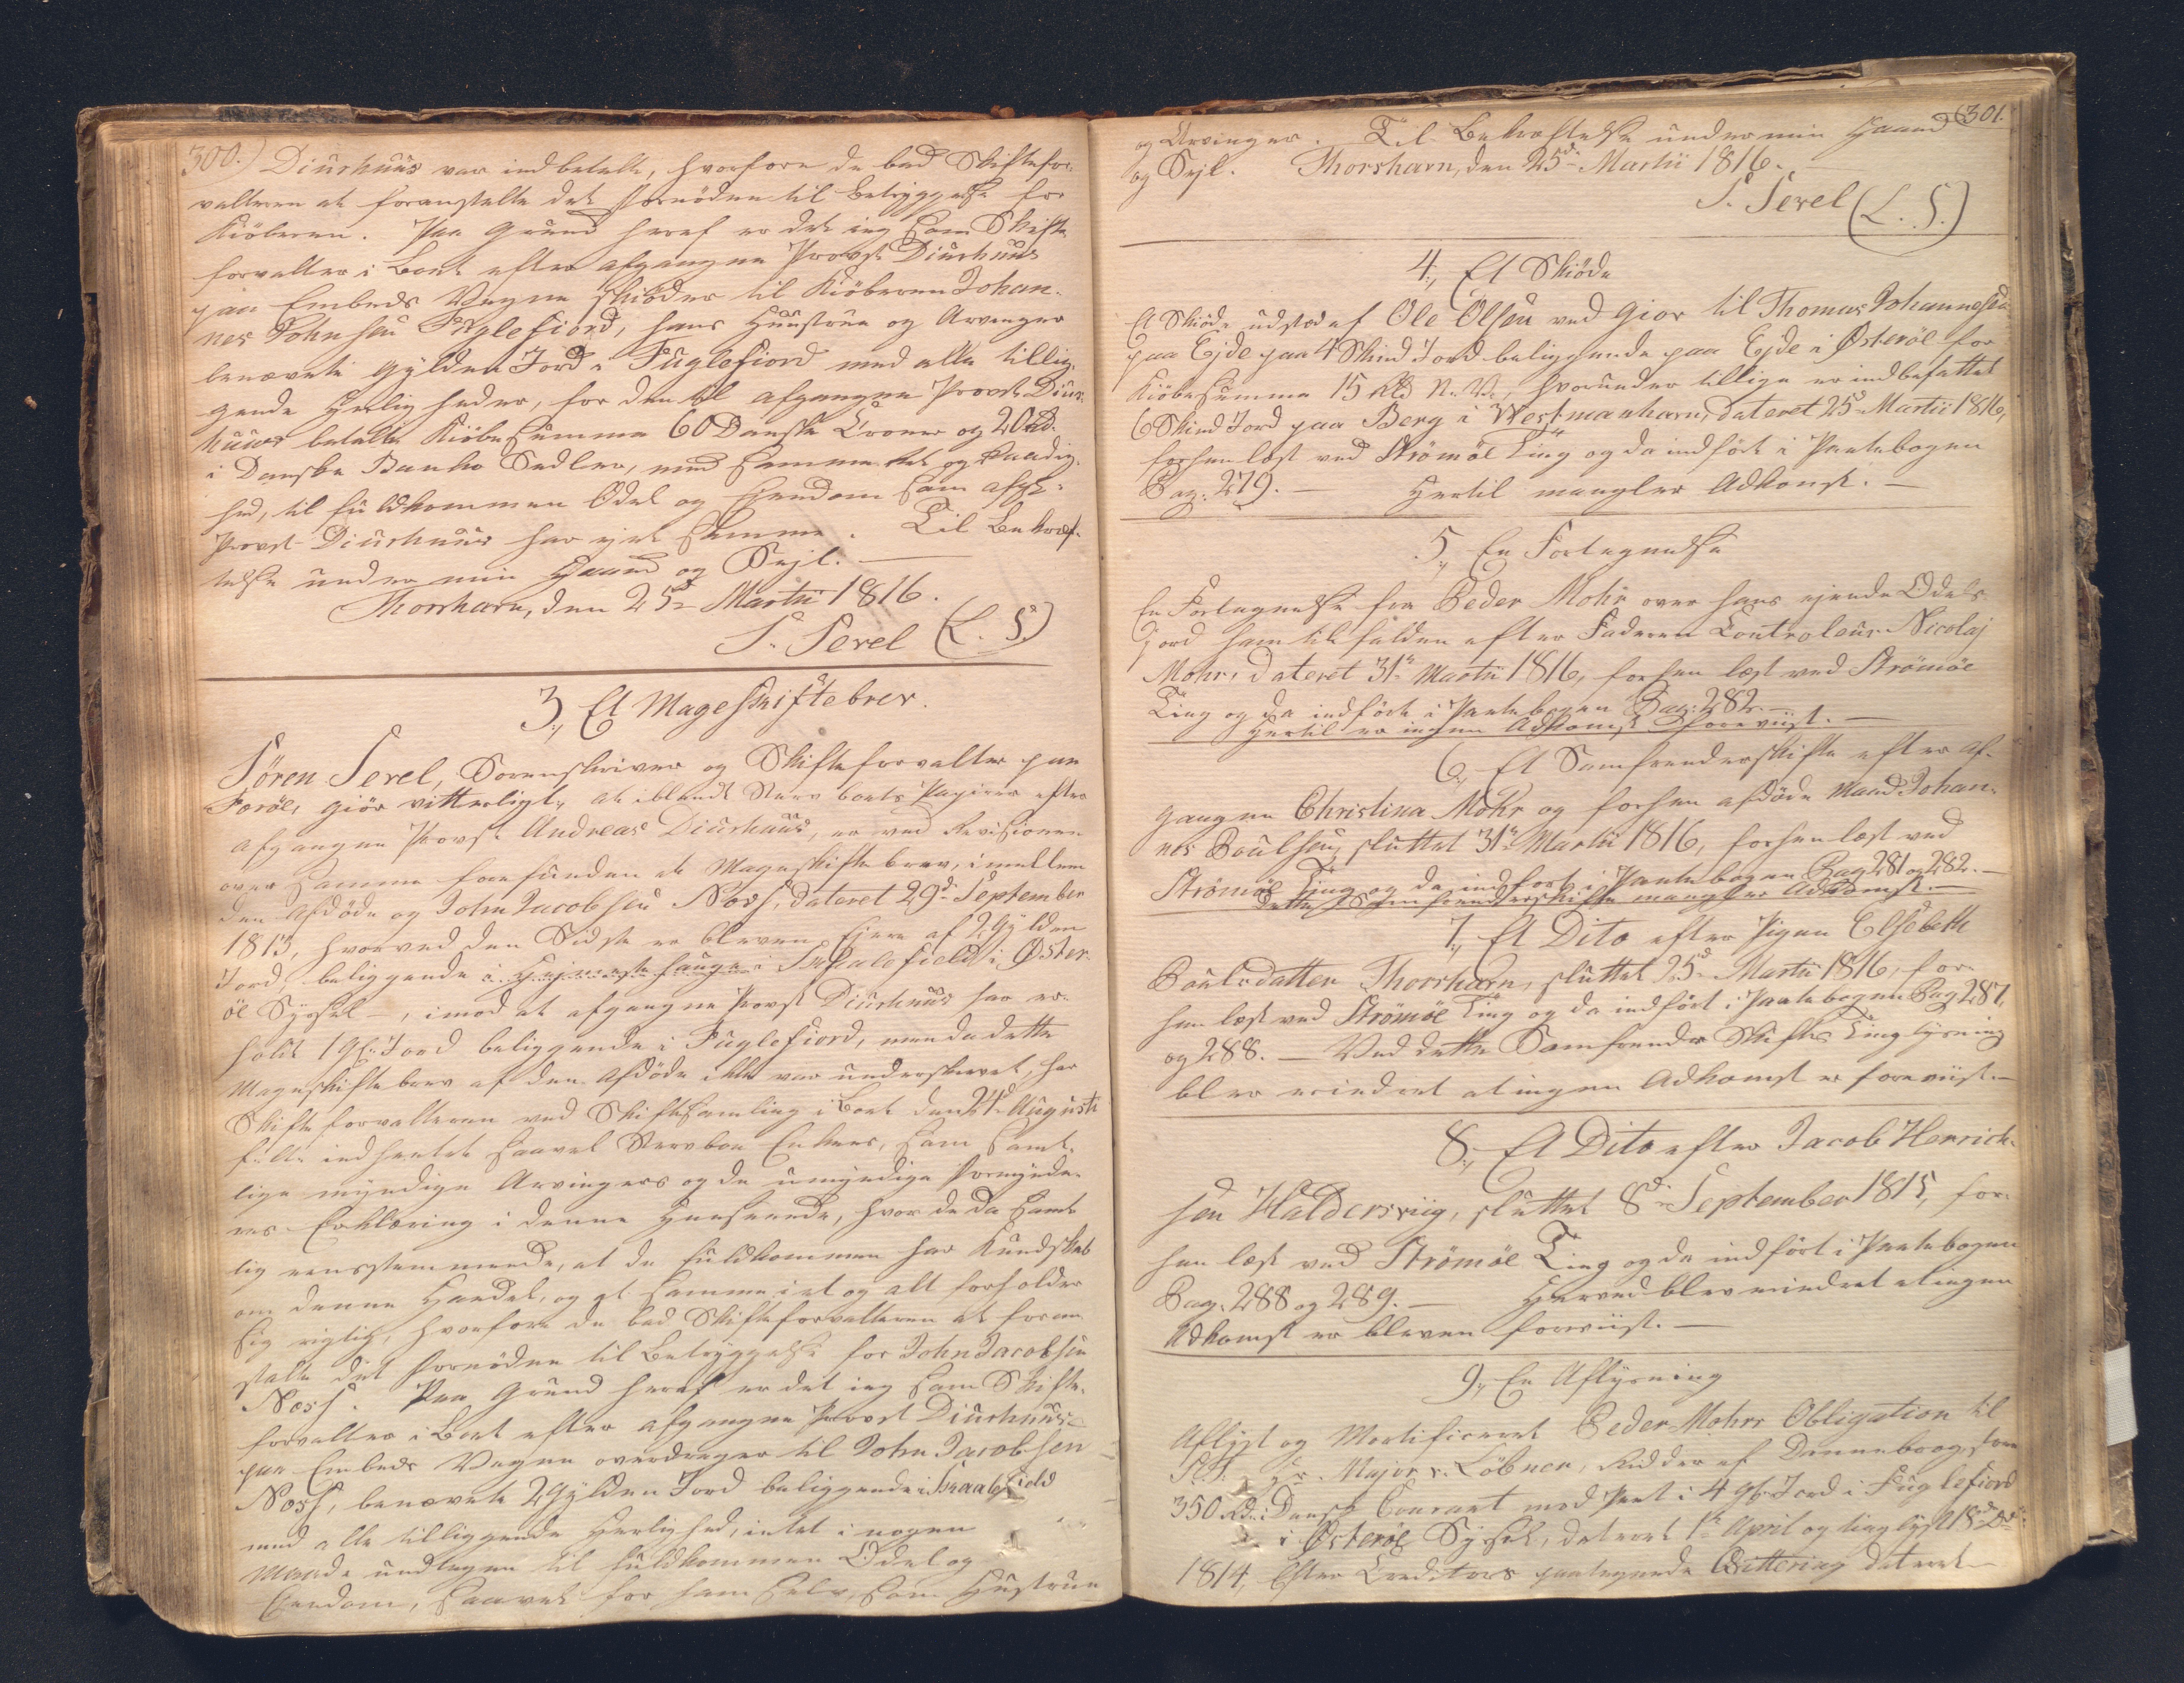 300.) Diurhuus var indbetalte, hvorfore de bad Skiftefor-
valteren at foranstalte det fornödne til Betryggelse for
Kiöberen. Paa Grund heraf er det ieg som Skifte
forvalter i Boet efter afgangne Provst Diurhuus
paa Embeds Vegne skiöder til Kiöberen Johan-
nes Johnsen Fuglefiord, hans Huustrue og Arvinger
benævnte Gylden Jord i Fuglefiord med alle tillig-
gende Herligheder, for den til afgangne Provst Diur-
huus betalte Kiöbesumma 60 Danske Croner og 20 Rd.
i Danske Banko Sedler, med samme Ret og Raadig-
hed, til fuldkommen Odel og Eyendom som afg:
Provst Diurhuus har ejet samme. Til Bekræf-
telse under min Haand og Sejl. —
Thorshavn, den 25d Martii 1816.
S. Serel (L. S.)
3, Et Mageskiftebrev.
Sören Serel, Sorenskriver og Skifteforvalter paa
Færöe, giör vitterligt, at iblandt Stervboets Papirer efter
afgangne Provst Andreas Diurhuus, er ved Revisionen
over samme forefunden et Mageskiftebrev, imellem
den Afdöde og John Jacobsen Næss, dateret 29d September
1813, hvorved den Sidste er bleven Ejere af 2 Gylden
Jord, beliggende i i Öster-
öe Sÿssel —, imod at afgangne Provst Diurhuus har er-
holdt 1 Gl: Jord beliggende i Fuglefiord, men da dette
Mageskiftebrev af den Afdöde ikke var underskrevet, har
Skifteforvalteren ved Skiftesamling i Boet den 24d Augusti
f: A: indhentet saavel Stervboe Enkens, som samt-
lige myndige Arvingers og de umyndige Formynde-
res Erklæring i denne Henseende, hvor de da samt-
lig eensstemmende, at de fuldkommen har Kundskab
om denne Handel, og at samme i et og alt forholder
sig rigtig, hvorfore de bad Skifteforvalteren at foran-
stalte det fornödne til Betryggelse for John Jacobsen
Næss. Paa Grund heraf er det ieg som Skifte-
forvalter i Boet efter afgangne Provst Diurhuus
paa Embeds Vegne overdrager til John Jacobsen
Næss, benævnte 2 Gylden Jord beliggende i
med alle tilliggende Herlighed, intet i nogen
Maade undtagen til fuldkommen Odel og
Eyendom, saavel for ham selv, som Hustrue
301.
og Arvinger. Til Bekræftelse under min Haand
og Sejl. Thorshavn, den 25d Martii 1816. —
S. Serel (L. S.)
4, Et Skiöde
Et Skiöde udsted af Ole Olsen ved Giov til Thomas Johannesen
paa Ejde paa 4 Skind Jord beliggende paa Ejde i Österöe for
Kiöbesumma 15 Rbd N. V., hvorunder tillige er indbefattet
6 Skind Jord paa Berg i Westmanhavn, dateret 25d Martii 1816,
forhen læst ved Strömöe Ting og da indfört i Pantebogen
Pag: 279. — Hertil mangler Adkomst. —
5, En Fortegnelse
En Fortegnelse fra Peder Mohr over hans ejende Odels
Jord ham tilfalden efter Faderen Controleur Nicolaj
Mohr, dateret 31te Martii 1816, forhen læst ved Strömöe
Ting og da indfört i Pantebogen Pag: 282. —
Hertil er ingen Adkomst foreviist. —
6, Et Samfrendeskifte efter af-
gangne Christina Mohr og forhen afdöde Mand Johan-
nes Poulsen, sluttet 31te Martii 1816, forhen læst ved
Strömöe Ting og da indfört i Pantebogen Pag: 281 og 282. —
Dette Samfrendeskifte mangler Adkomst. —
7, Et Dito efter Pigen Elsebeth
Poulsdatter Thorshavn, sluttet 25d Martii 1816, for-
hen læst ved Strömöe Ting og da indfört i Pantebogen Pag 287,
og 288. — Ved dette Samfrende Skiftes Tinglysning
blev erindret at ingen Adkomst er foreviist. —
8, Et Dito efter Jacob Henrich-
sen Haldersviig, sluttet 8d September 1815, for-
hen læst ved Strömöe Ting og da indfört i Pantebogen
Pag. 288 og 289. — Herved blev erindret at ingen
Adkomst er bleven foreviist. —
9, En Aflysning
Aflyst og Mortificeret Peder Mohrs Obligation til
S. T. Hr. Major v. Löbner, Ridder af Dannebrog, stor
350 Rd. i Dansk Courant med Pant i 4 Gl: Jord i Fuglefiord
i Österöe Sÿssel, dateret 1te April og tinglyst 18de
1814, Efter Creditors paategnede Qvittering dateret